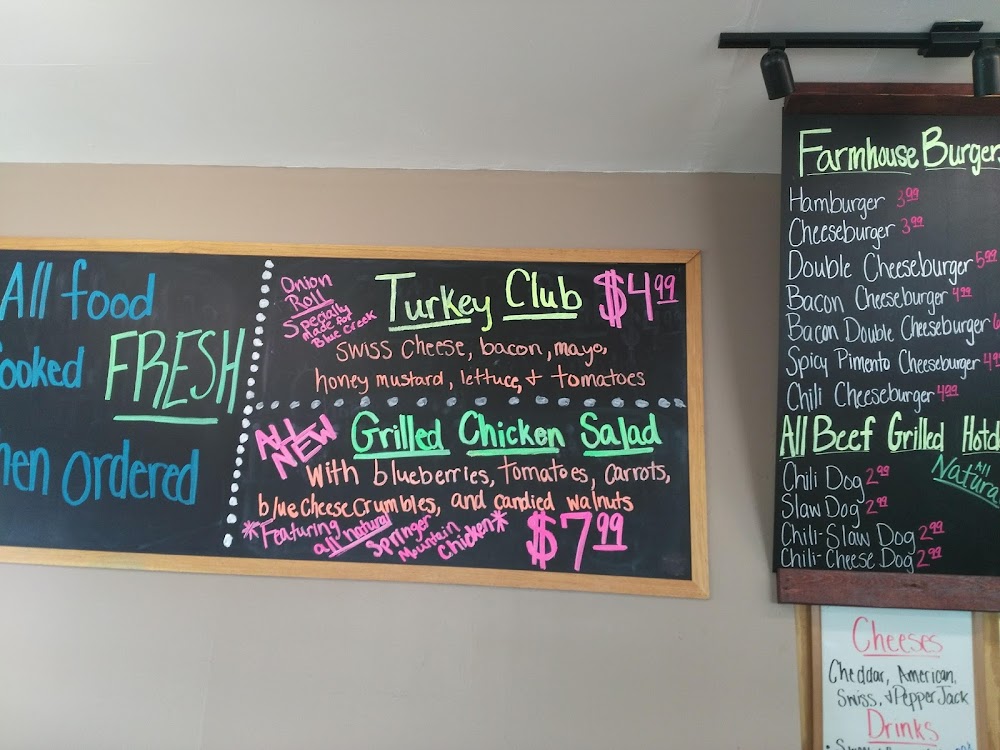 All food
cooked FRESH
when ordered
Onion
Roll
Specially
made for
Blue Creek
Turkey Club $4.99
swiss cheese, bacon, mayo,
honey mustard, lettuce, & tomatoes
All
NEW
Grilled Chicken Salad
with blueberries, tomatoes, carrots,
blue cheese crumbles, and candied walnuts
*Featuring
all natural
Springer
Mountain
Chicken*
$7.99
Farmhouse Burgers
Hamburger 3.99
Cheeseburger 3.99
Double Cheeseburger 5.99
Bacon Cheeseburger 4.99
Bacon Double Cheeseburger 6
Spicy Pimento Cheeseburger 4.99
Chili Cheeseburger 4.99
All Beef Grilled Hotd
All
Natural
Chili Dog 2.99
Slaw Dog 2.99
Chili-Slaw Dog 2.99
Chili-Cheese Dog 2.99
Cheeses
Cheddar, American,
Swiss, & Pepper Jack
Drinks